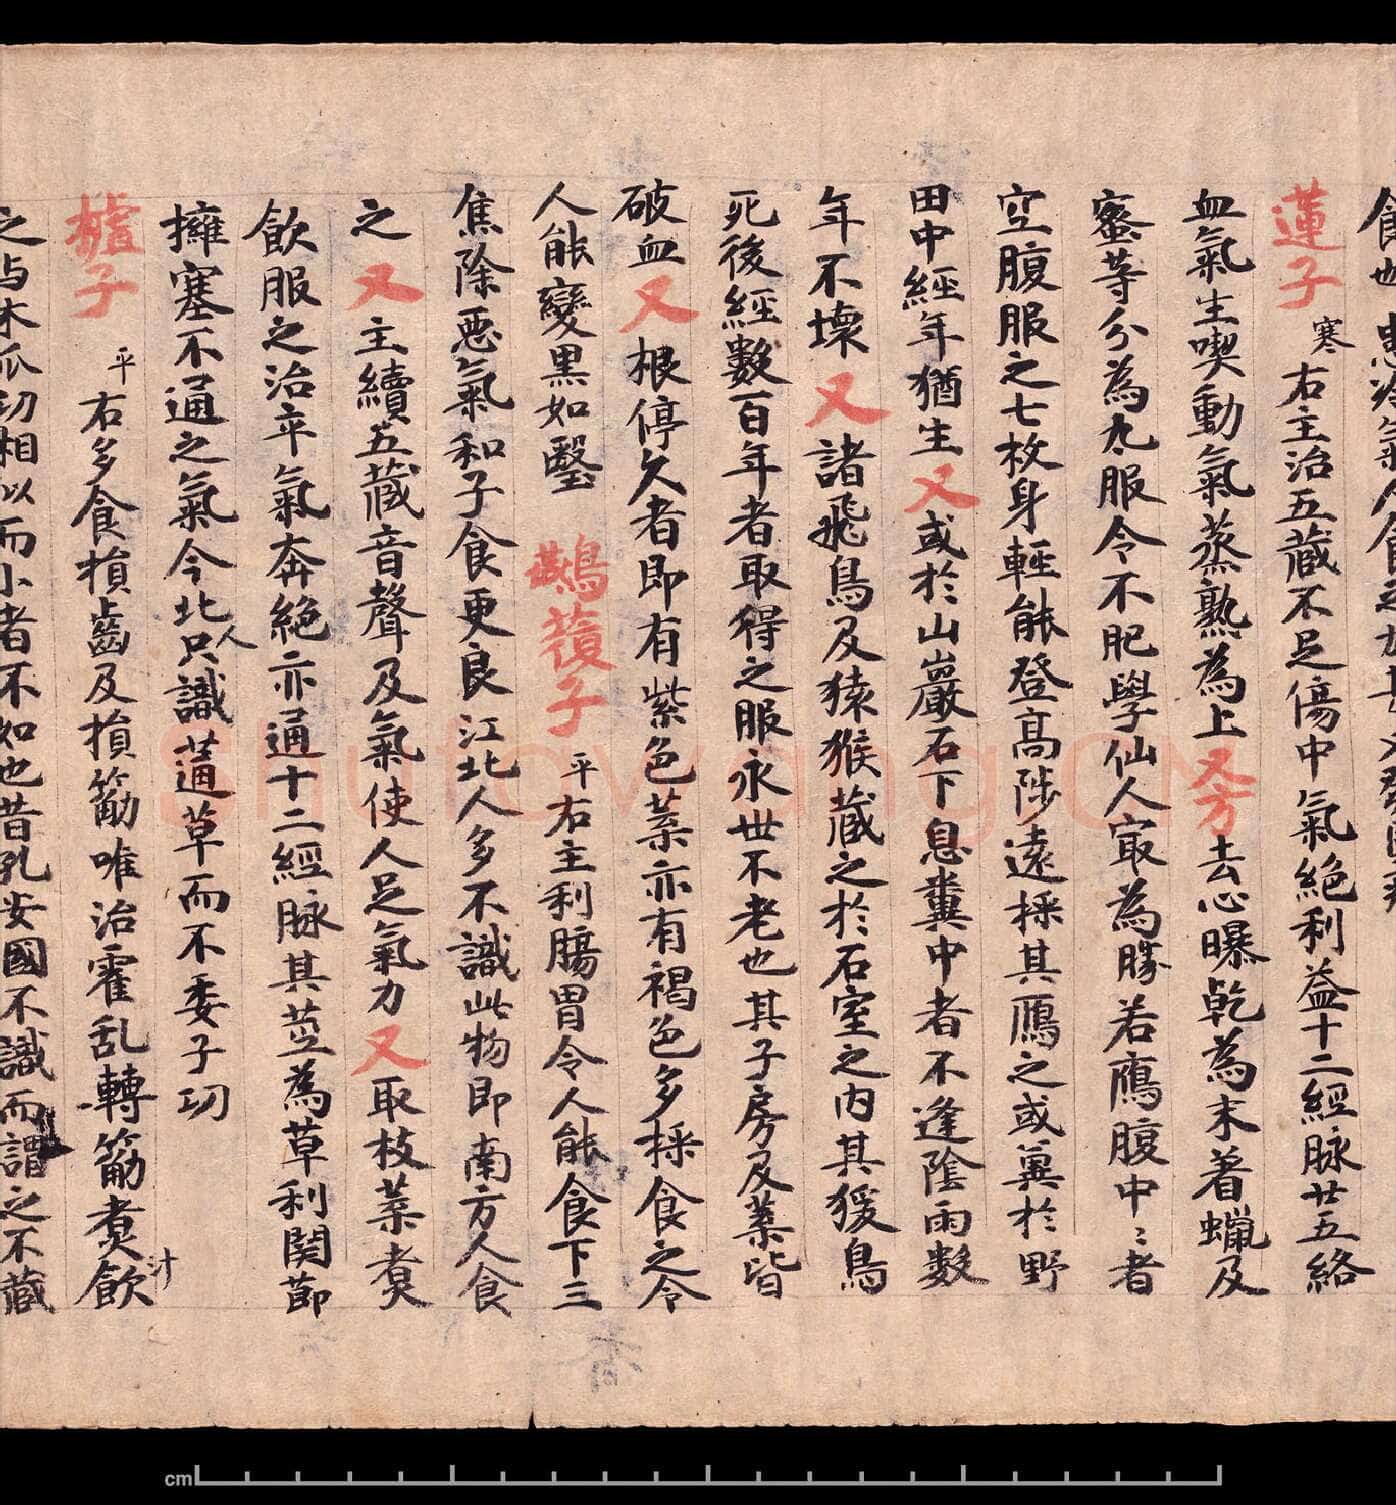 蓮子寒右主治五藏不足傷中氣絕利益十二經脉廿五絡
血氣生喫動氣蒸熟為上又方去心曝乾為末著蠟及
蜜等分為丸服令不肥學仙人冣為勝若鴈腹中〻者
空腹服之七枚身輕能登高陟遠採其鴈之或糞於野
田中經年猶生又或於山巖石下息糞中者不逢陰雨數
年不壞又諸飛鳥及猿猴藏之於石室之內其猨鳥
死後經數百年者取得之服永世不老也其子房及葉皆
破血又根停久者即有紫色葉亦有褐色多採食之令
人能變黑如毉 鷰䕊子平右主利腸胃令人能食下三
焦除惡氣和子食更良江北人多不識此物即南方人食
之又主續五藏音聲及氣使人足氣力又取枝葉煑
飲服之治卒氣奔絕亦通十二經脉其莖為草利関節
擁塞不通之氣今北人只識蓪草而不委子功
樝子平右多食損齒及損筋唯治霍乱轉筋煑汁飲
之与木瓜功相似而小者不如也昔孔安國不識而謂之不藏